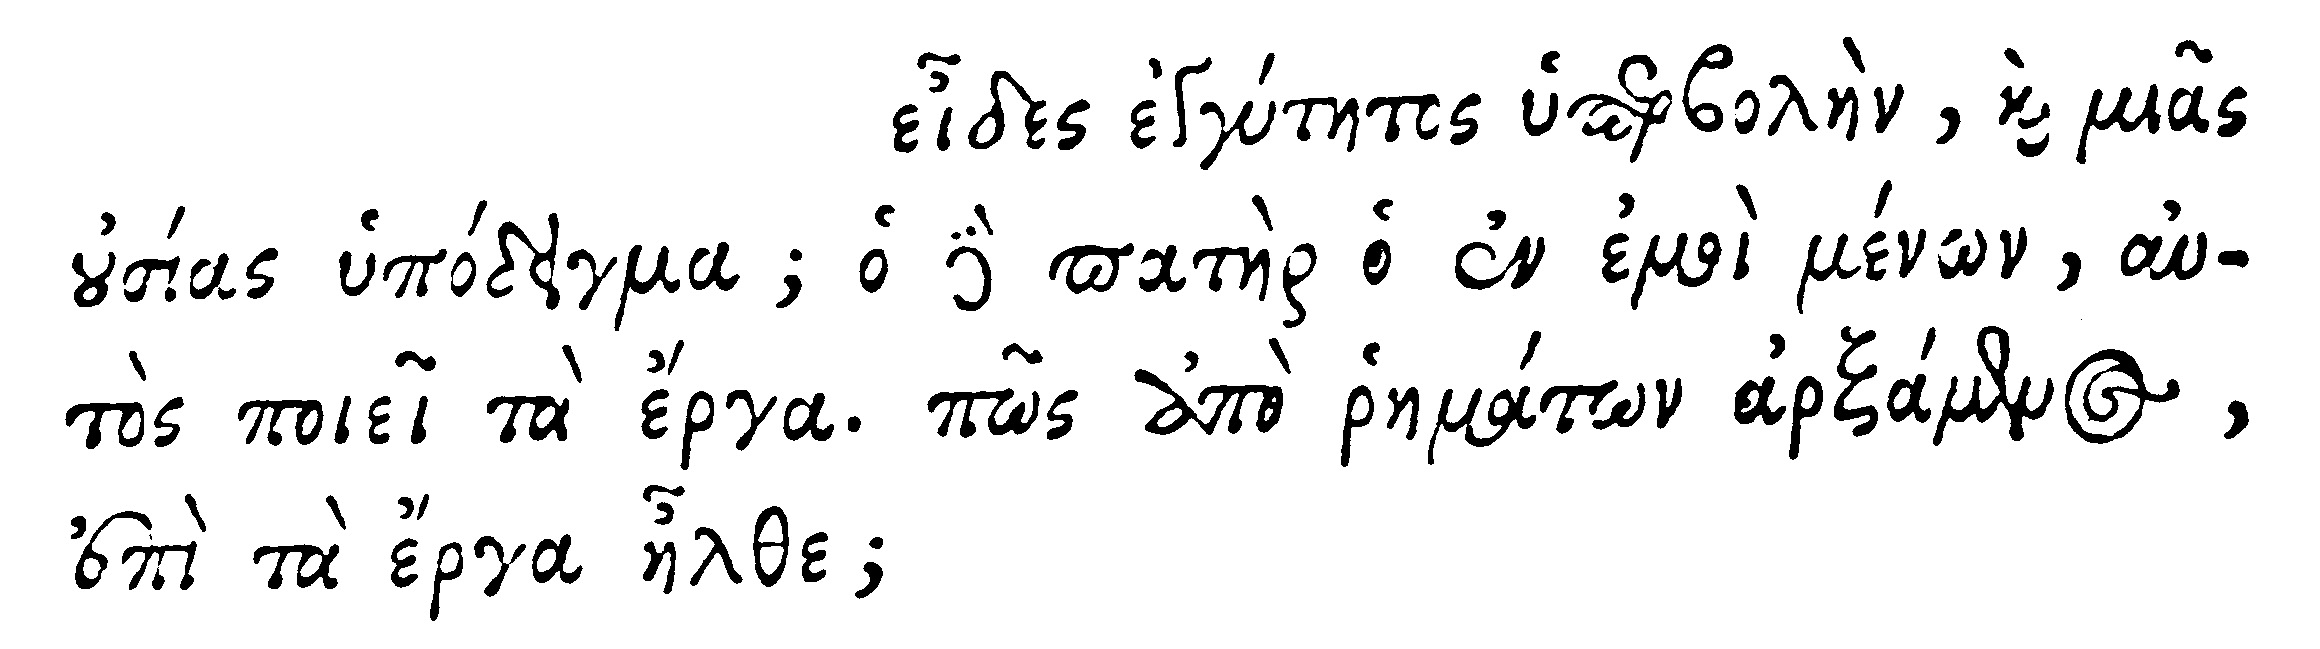 εἶδες ἐγγύτητος ὑπερβολὴν, καὶ μιᾶς
οὐσίας ὑπόδειγμα; ὁ δὲ πατὴρ ὁ ἐν ἐμοὶ μένων, αὐ-
τὸς ποιεῖ τὰ ἔργα. πῶς ἀπὸ ῥημάτων ἀρξάμενος,
ἐπὶ τὰ ἔργα ἦλθε;